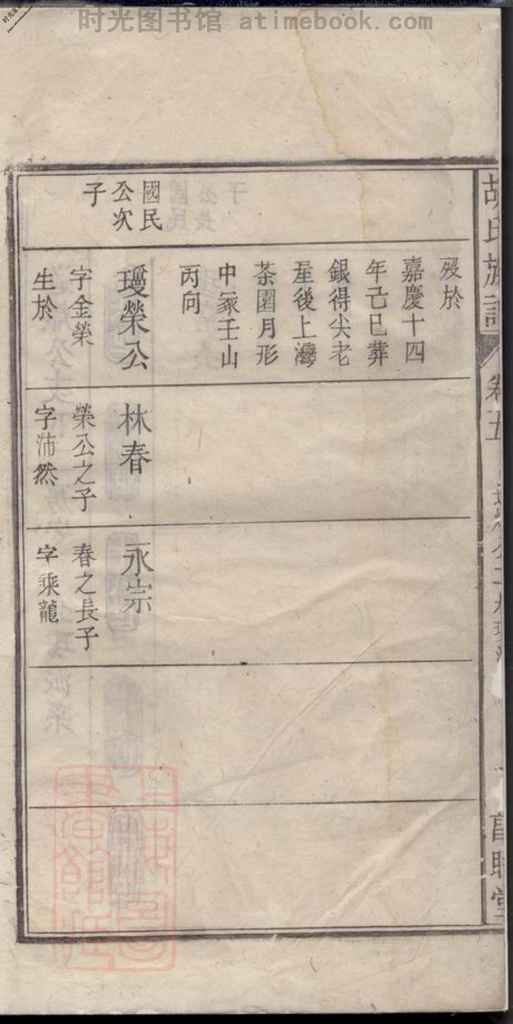 时光图书馆 atimebook.com
胡氏族譜
卷五
國民
公次
子
歿於
嘉慶十四
年己巳葬
銀得尖老
屋後上灣
茶園月形
中冢壬山
丙向
瑗榮公
字金榮
生於
林春
榮公之子
字沛然
永宗
春之長子
字乘龍